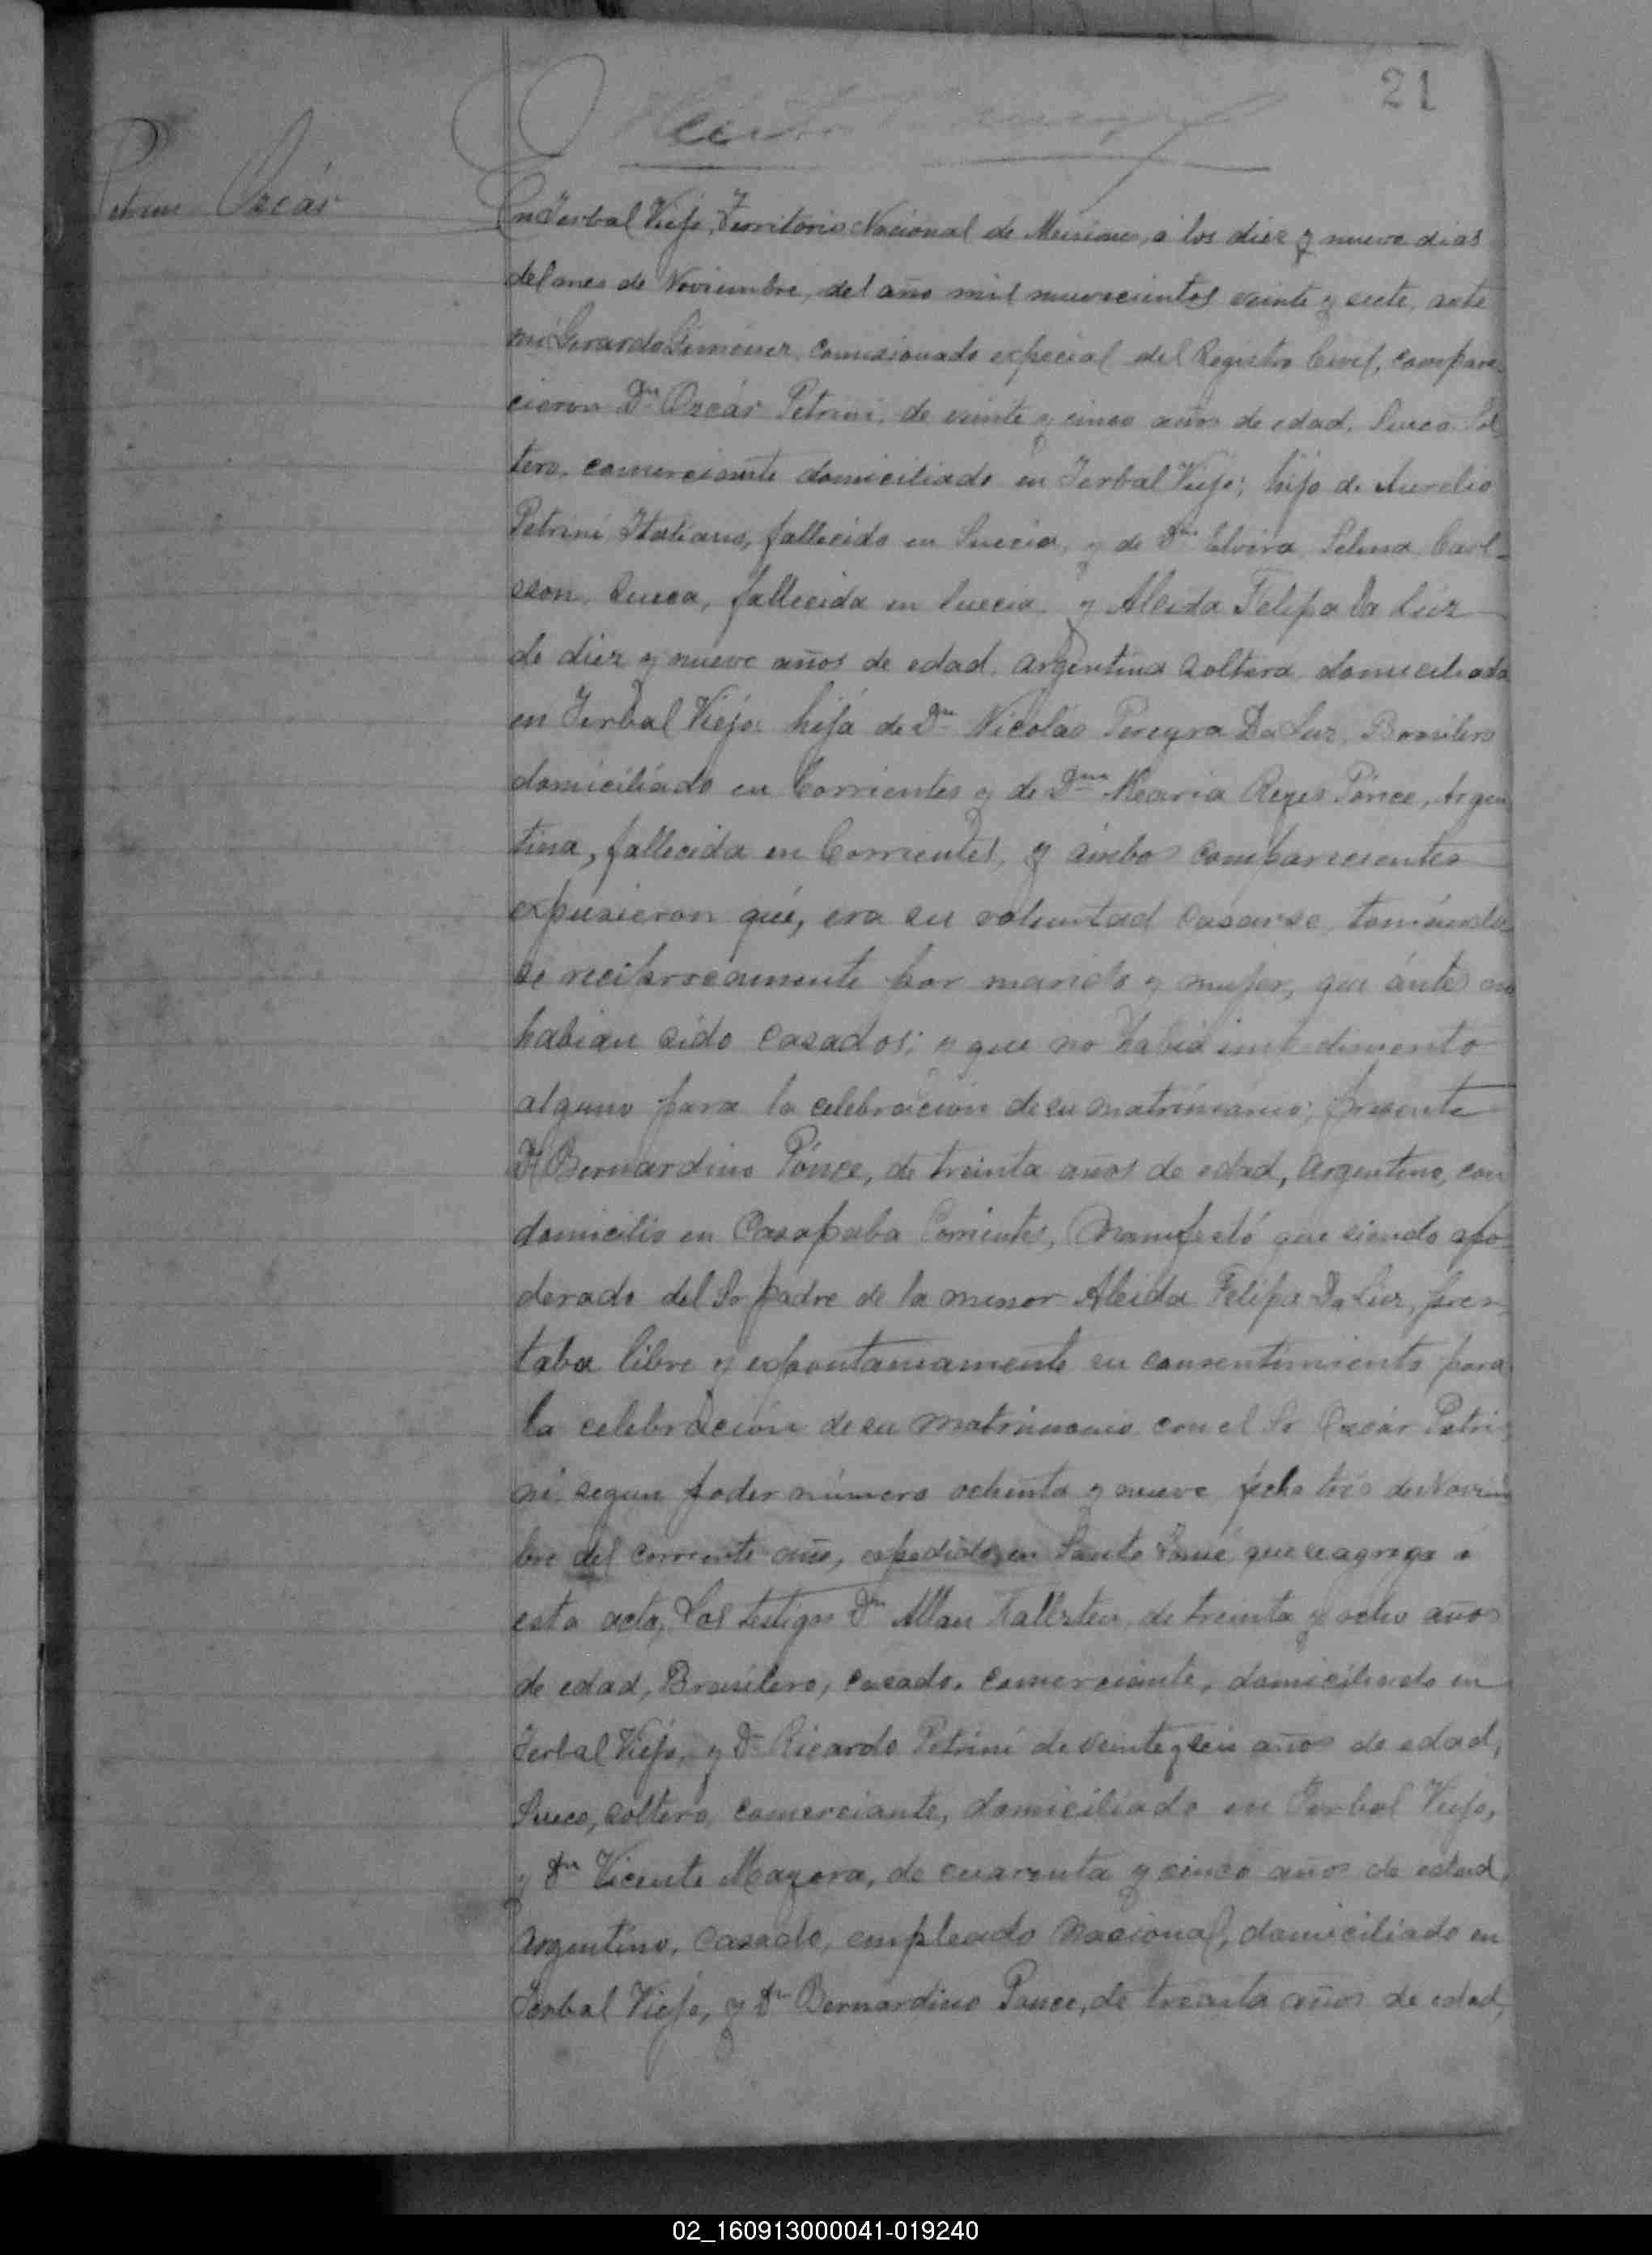 21
Petrini Oscár
En Yerbal Viejo, Territorio Nacional de Misiones, a los diez y nueve dias
del mes de Noviembre, del año mil nuevecientos veinte y siete, ante
mi Gerardo Gimenez, comisionado especial del Registro Civil, compare-
cieron Dn Oscár Petrini, de veinte y cinco años de edad, Sueco, Sol-
tero, comerciante domiciliado en Yerbal Viejo; hijo de Aurelio
Petrini Italiano, fallecido en Suecia, y de Dña Elvira Selma Carl-
sson, Sueca, fallecida en Suecia y Aleida Felipa Da Luz
de diez y nueve años de edad, argentina soltera domiciliada
en Yerbal Viejo: hija de Dn Nicolás Pereyra Da Luz, Brasilero
domiciliado en Corrientes y de Dña Maria Reyes Pónce, Argen
tina, fallecida en Corrientes, y ámbos comparecientes
expusieron qué, era su voluntad casarse, tomándo
se reciprocamente por marido y mujer, que ántes no
habian sido casados; y que no habia impedimento
alguno para la celebración de su matrimonio; presente
Dn Bernardino Pónce, de treinta años de edad, argentino, con
domicilio en Casapaba Corrientes, Manifestó que siendo apo-
derado del Sr padre de la menor Aleida Felipa Da Luz, pres-
taba libre y espontaneamente su consentimiento para
la celebración de su matrimonio con el Sr Oscár Petri
ni, segun poder número ochenta y nueve fecha tres de Noviem
bre del corriente año, expedido en Santo Tomé que se agrega á
esta acta, Los testigos Dn Allan Hallsten, de treinta y ocho años
de edad, Brasilero, casado, comerciante, domiciliado en
Yerbal Viejo, y Dn Ricardo Petrini de veinte y seis años de edad,
Sueco, soltero, comerciante, domiciliado en Yerbal Viejo,
y Dn Vicente Mazora, de cuarenta y cinco años de edad,
argentino, casado, empleado Nacional, domiciliado en
Yerbal Viejo, y Dn Bernardino Ponce, de treinta años de edad,
02_160913000041-019240